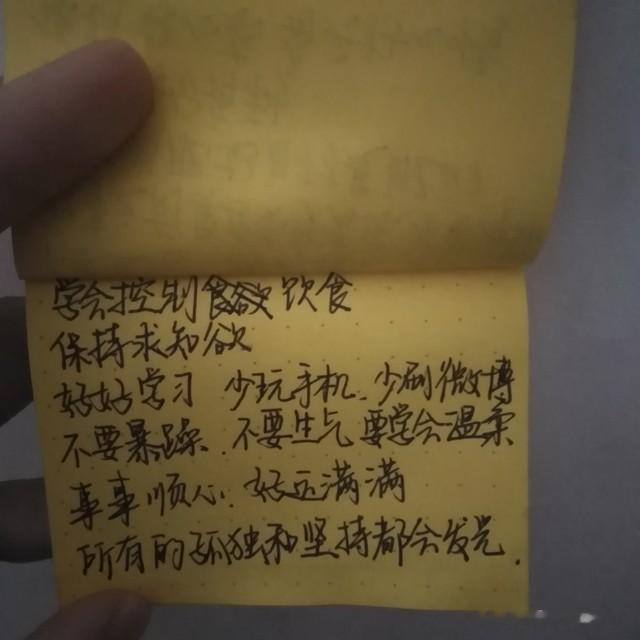 学会控制食欲 饮食
保持求知欲
好好学习 少玩手机. 少刷微博
不要暴躁. 不要生气 要学会温柔
事事顺心. 好运满满
所有的孤独和坚持都会发光.